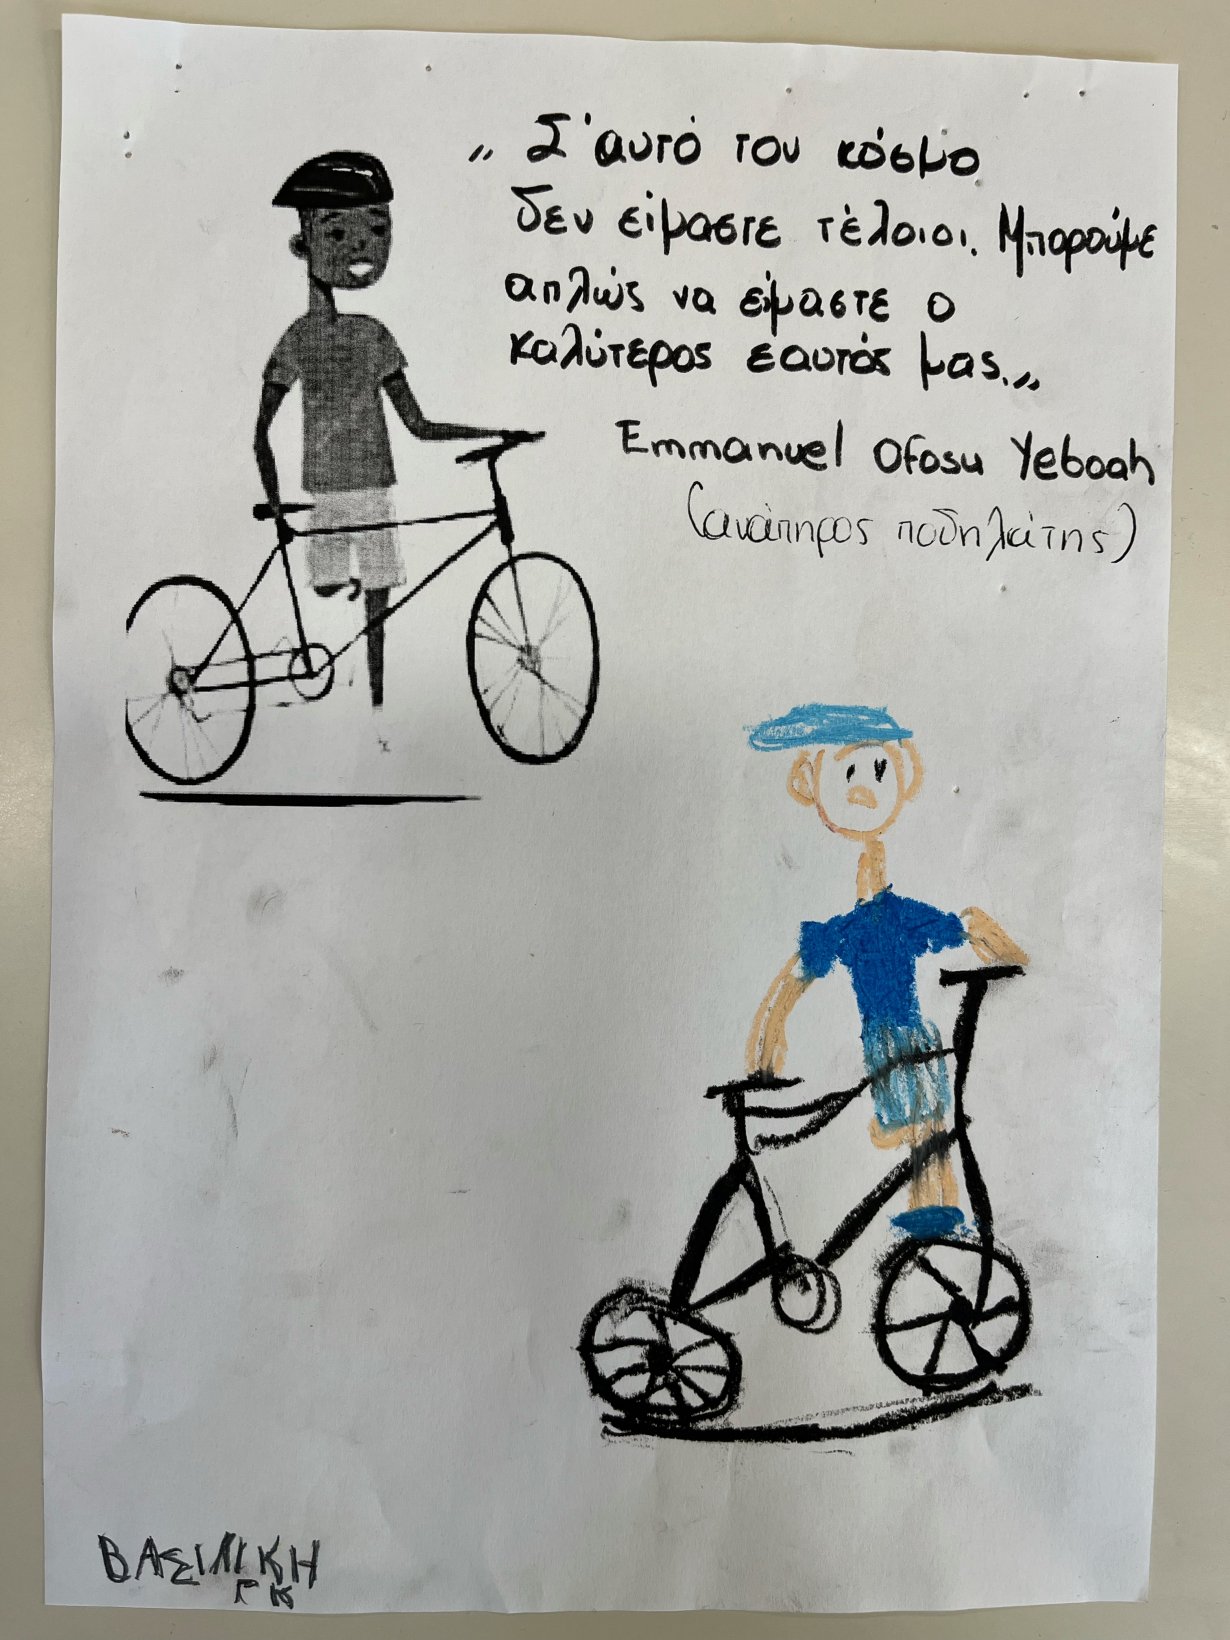 „ Σ'αυτό τον κόσμο
δεν είμαστε τέλοιοι. Μπορούμε
απλώς να είμαστε ο
καλύτερος εαυτός μας.„
Emmanuel Ofosu Yeboah
(ανάπηρος ποδηλάτης)
ΒΑΣΙΛΙΚΗ
ΓΚ